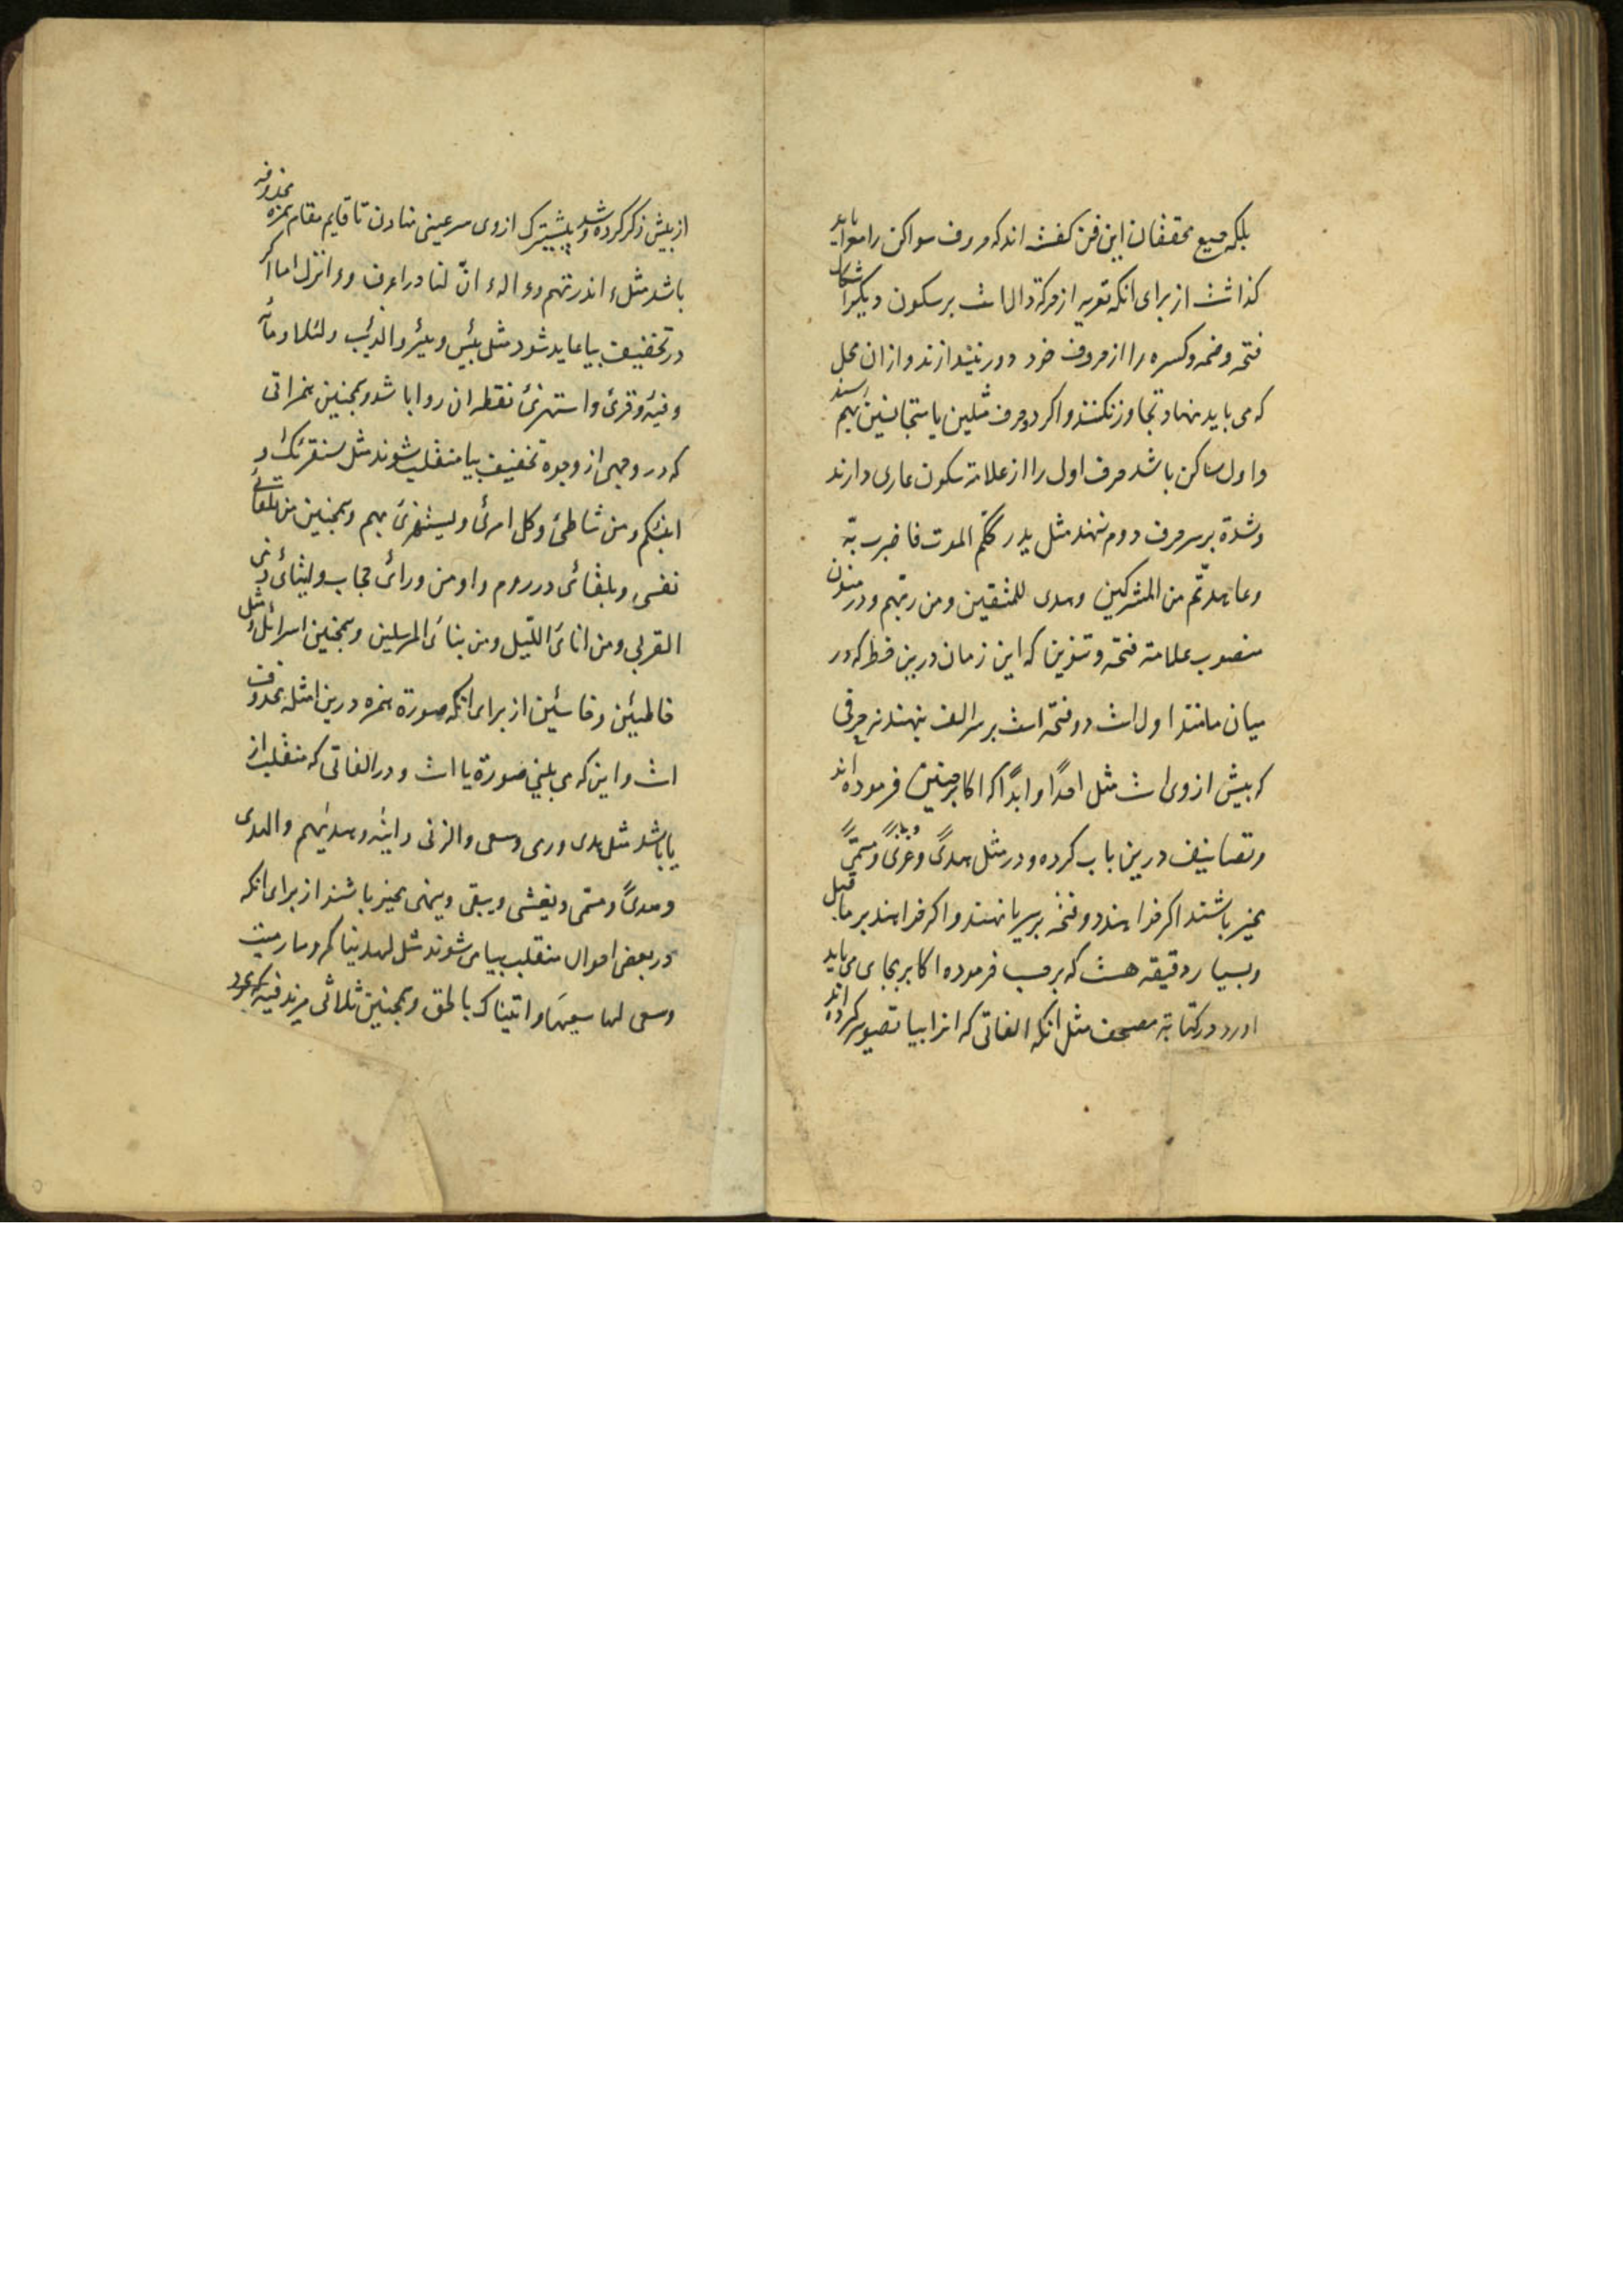 بلکه جمیع محققان این فن کفته اند که حروف سواکن را معرا باید
کذاشت از برای انکه تعریه از حرکة دال است بر سکون و دیکر اشکال
فتحه و ضمه و کسره را از حروف خود دور نیندازند و از ان محل
که می باید نهاد تجاوز نکنند و اکر دو حرف مثلین یا متجانسین بهم رسند
و اول ساکن باشد حرف اول را از علامة سکون عاری دارند
و شدة بر سر حرف دوم نهند مثل یدرککم الموت فاضرب به
و عاهدتم من المشرکین و هدی للمتقین و من ربهم و در منون
منصوب علامة فتحه و تنوین که این زمان درین خطه که در
میان ما متداول است دو فتحه است بر سر الف بنهند نه حرفی
که پیش از وی است مثل احدًا و ابدًا که اکابر چنین فرموده اند
و تصانیف درین باب کرده و در مثل هدیً و غزیً و مسمّیً
مخیر باشند اکر خواهند دو فتحه بر سر یا نهند و اکر خواهند بر ما قبل
و بسیار دقیقه هست که بر حسب فرموده اکابر بجای می باید
اورد در کتابة مصحف مثل انکه الفاتی که انرا بیا تصویر کرده اند
از پیش ذکر کرده شد و پیشترک از وی سر عینی نهادن تا قایم مقام همزه محذوفه
باشد مثل ء انذرتهم و ء اله و ائن لنا در اعراف و ء انزل اما اکر
در تخفیف بیا عاید شود مثل بئس و بئر و الذئب و لئلا و مائه
و فئه و قرئ و استهزئ نقطه ان روا باشد و همچنین همزاتی
که در وجهی از وجوه تخفیف بیا منقلب شوند مثل سنقرئک و
انبئکم و من شاطئ و کل امرئ و یستهزئ بهم و همچنین من تلقائ
نفسی و بلقائ در روم و او من ورائ حجاب و ایتائ ذی
القربی و من انائ اللیل و من نبائ المرسلین و همچنین اسرائل و مثل
خاطئین و خاسئین از برای انکه صورة همزه درین امثله محذوف
است و این که می بینی صورة یا است و در الفاتی که منقلب از
یا باشد مثل هدی و رمی و سعی و الزنی و اتیه و هدیهم و الهدی
و هدیً و مسمی و یغشی و یبقی و ینهی مخیر باشند از برای انکه
در بعض احوال منقلب بیا می شوند مثل لهدیناکم و ما رمیت
و سعی لها سعیها و اتیناک بالحق و همچنین ثلاثی مزید فیه که مجرد